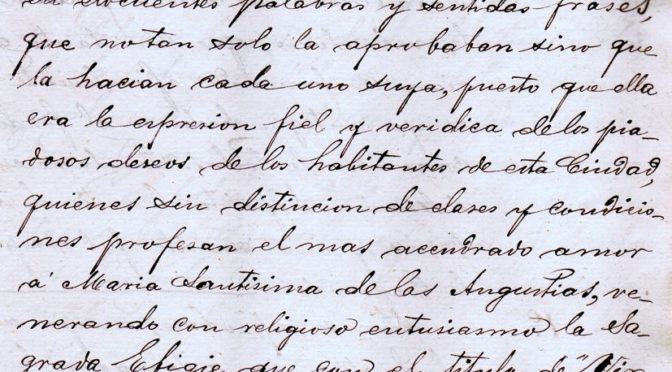 en elocuentes palabras y sentidas frases,
que no tan solo la aprobaban sino que
la hacian cada uno suya, puesto que ella
era la espresion fiel y veridica de los pia-
dosos deseos de los habitantes de esta Ciudad,
quienes sin distincion de clases y condicio-
nes profesan el mas acendrado amor
á Maria Santisima de las Angustias, ve-
nerando con religioso entusiasmo la Sa-
grada Efigie que con el titulo de "Vir